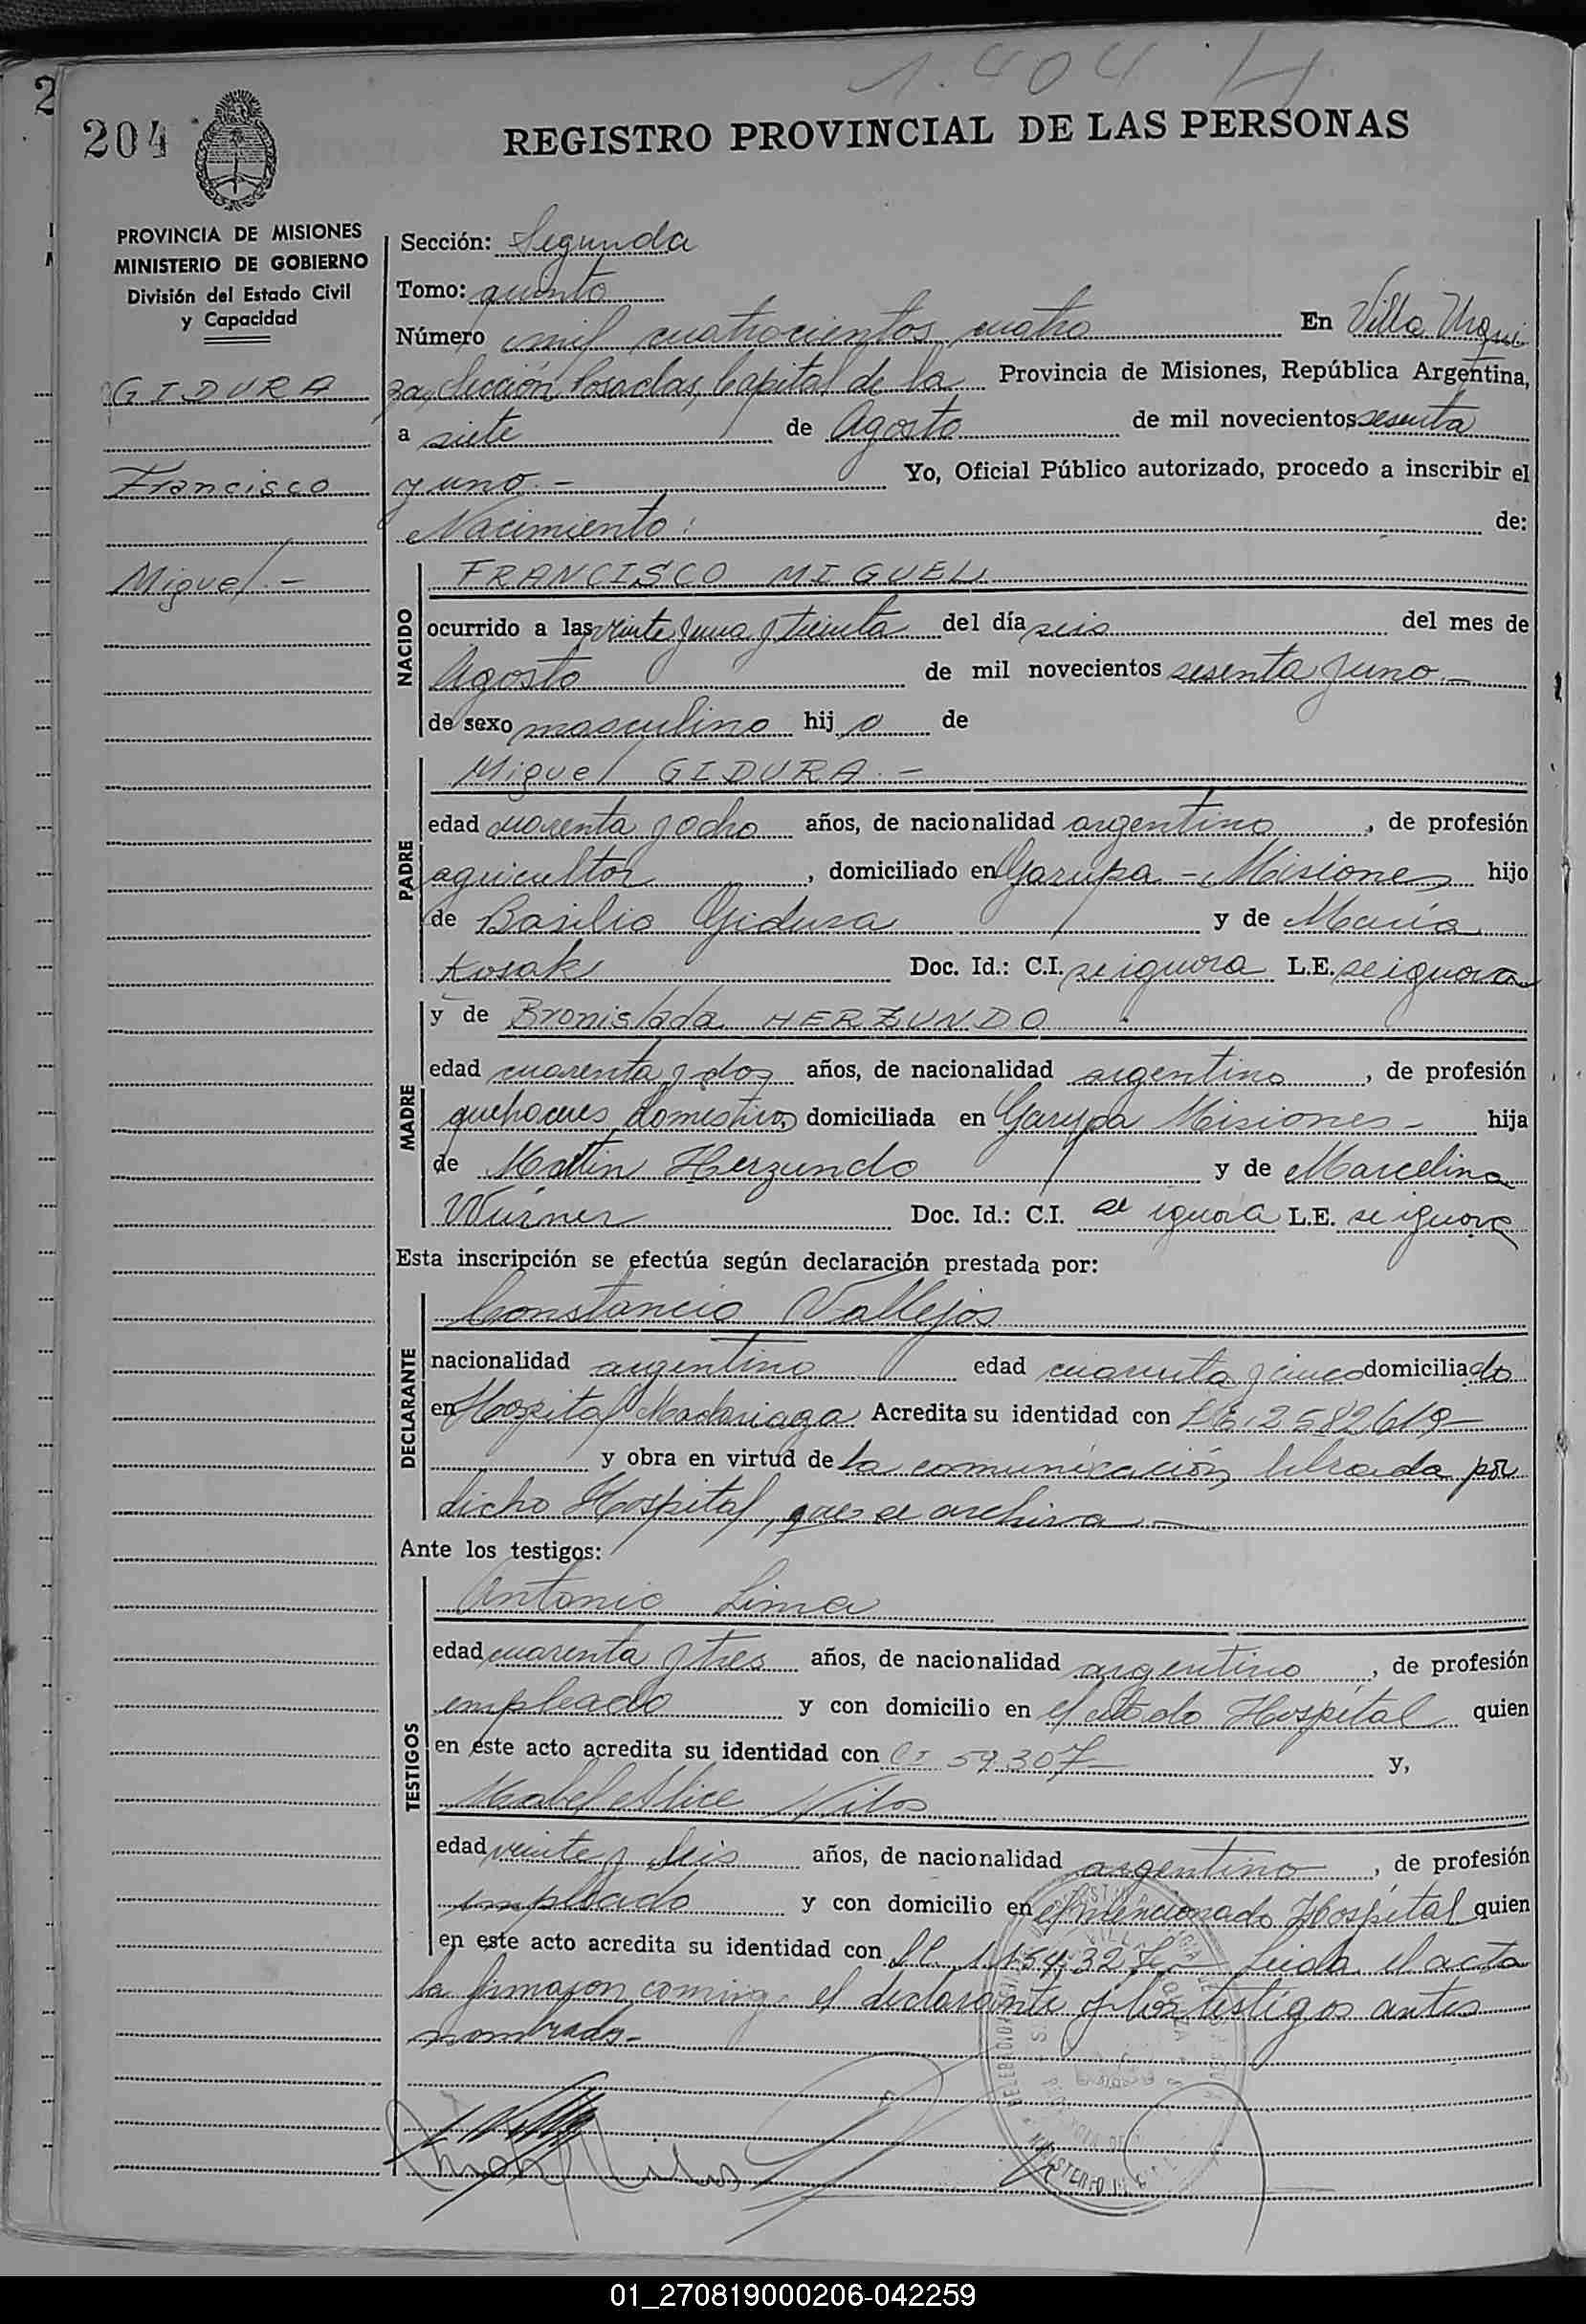 1.404 H
204
REGISTRO PROVINCIAL DE LAS PERSONAS
PROVINCIA DE MISIONES
MINISTERIO DE GOBIERNO
División del Estado Civil
y Capacidad
GIDURA
Francisco
Miguel.-
Sección: Segunda
Tomo: quinto
Número mil cuatrocientos cuatro En Villa Urqui
za, Sección Posadas, Capital de la Provincia de Misiones, República Argentina,
a siete de Agosto de mil novecientos sesenta
y uno.- Yo, Oficial Público autorizado, procedo a inscribir el
Nacimiento: de:
NACIDO
FRANCISCO MIGUEL
ocurrido a las veinte y una y treinta del día seis del mes de
Agosto de mil novecientos sesenta y uno.-
de sexo masculino hijo de
PADRE
Miguel GIDURA.-
edad cuarenta y ocho años, de nacionalidad argentino, de profesión
agricultor, domiciliado en Garupa - Misiones hijo
de Basilio Gidura y de María
Kosak Doc. Id.: C.I. se ignora L.E. se ignora
MADRE
y de Bronislada HERZUNDO
edad cuarenta y dos años, de nacionalidad argentina, de profesión
quehaceres domesticos domiciliada en Garupa Misiones - hija
de Martin Herzundo y de Marcelina
Wúrner Doc. Id.: C.I. se ignora L.E. se ignora
Esta inscripción se efectúa según declaración prestada por:
DECLARANTE
Constancio Vallejos
nacionalidad argentino edad cuarenta y cinco domiciliado
en Hospital Madariaga Acredita su identidad con 2582619-
y obra en virtud de la comunicación librada por
dicho Hospital, que se archiva -
Ante los testigos:
TESTIGOS
Antonio Lima
edad cuarenta y tres años, de nacionalidad argentino, de profesión
empleado y con domicilio en el citado Hospital quien
en este acto acredita su identidad con CI 59.307- y,
Mabel Alice Nilos
edad veinte y seis años, de nacionalidad argentino, de profesión
empleado y con domicilio en el mencionado Hospital quien
en este acto acredita su identidad con Leida el acta
la firmaron conmigo el declarante y los testigos antes
nombrados-
01_270819000206-042259